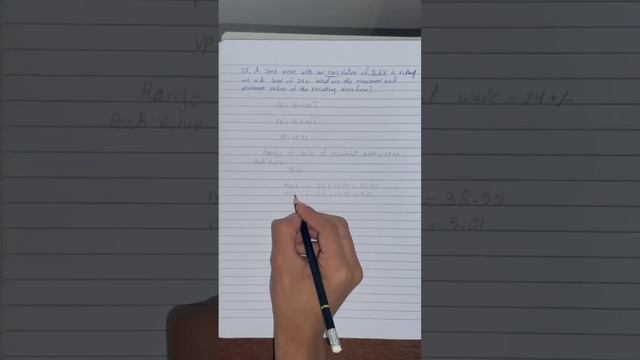 27. A sine wave with an rms value of 10.6V is riding
on a dc level of 24V. what are the maximum and
minimum values of the resulting waveform?
Vp = 
Vp = 10.6√2
Vp = 14.99
Range of value of resultant wave = 24 +/-
Peak value
max = 24 + 14.99 = 38.99
min = 24 - 14.99 = 9.01
Vp
Range
Peak Value
wave = 24 +/-
= 38.99
= 9.01